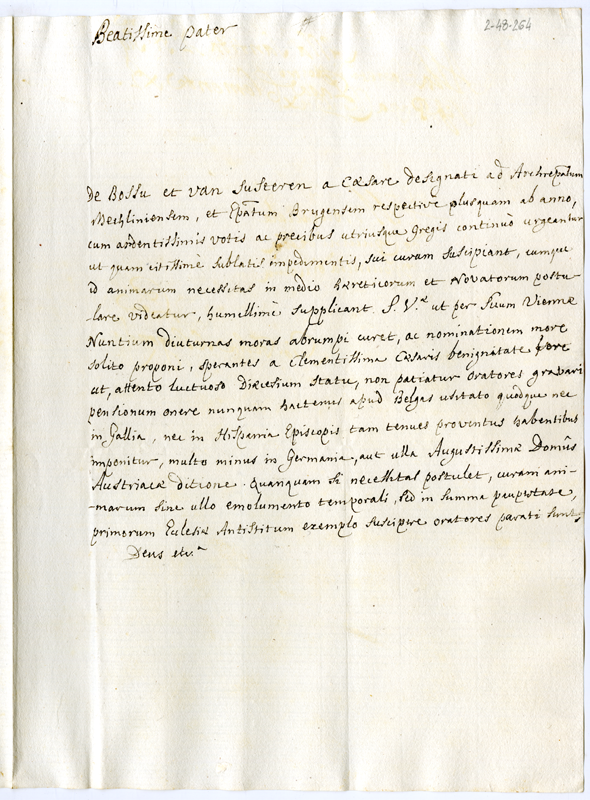 Beatissime Pater
2-48-264
De Bossu et van Susteren a Cæsare designati ad Archiepãtum
Mechliniensem, et Epãtum Brugensem respective plusquam ab anno,
cum ardentissimis votis ac precibus utriusque Gregis continuò urgeantur
ut quam citissimè sublatis impedimentis, sui curam suscipiant, cumque
id animarum necessitas in medio hæreticorum et Novatorum postu-
-lare videatur, humillimè supplicant S. V.æ ut per suum Viennæ
Nuntium diuturnas moras abrumpi curet, ac nominationem more
solito proponi, sperantes a Clementissima Cæsaris benignitate fore
ut, attento luctuoso Diæcesium statu, non patiatur oratores gravari
pensionum onere nunquam hactenus apud Belgas usitato quodque nec
in Gallia, nec in Hispania Episcopis tam tenues proventus habentibus
imponitur, multo minus in Germania, aut ulla Augustissimæ Domûs
Austriacæ ditione. Quanquam si necessitas postulet, curam ani-
-marum sine ullo emolumento temporali, sed in summa paupertate,
primorum Eclesiæ Antistitum exemplo suscipere oratores parati sunt.
Deus etc.a